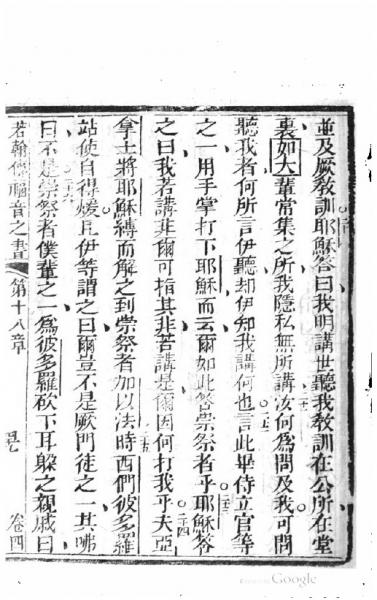 並及厥教訓耶穌答曰我明講世聽我教訓在公所在堂
裏如大輩常集之所我隱私無所講汝何為問及我可問
聽我者何所言伊聽却伊知我講何也言此畢侍立官等
之一用手掌打下耶穌而云爾如此答崇祭者乎耶穌答
之曰我若講非爾可指其非若講是爾因何打我乎夫亞
拿士將耶穌縛而解之到崇祭者加以法時西們彼多羅
站使自得煖且伊等謂之曰爾豈不是厥門徒之一其咈
曰不是崇祭者僕輩之一為彼多羅砍下耳躲之親戚曰
若翰傳福音之書 第十八章 卷四
Google